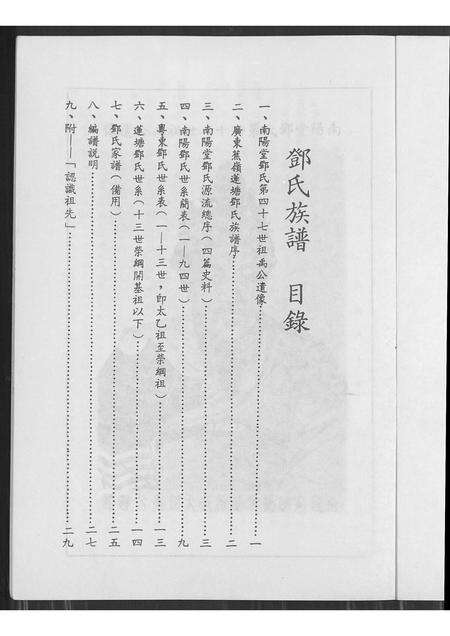 鄧氏族譜 目錄
一、南陽堂鄧氏第四十七世祖禹公遺像……一
二、廣東蕉嶺蓮塘鄧氏族譜序……二
三、南陽堂鄧氏源流總序（四篇史料）……三
四、南陽鄧氏世系簡表（一—九四世）……九
五、粵東鄧氏世系表（一—十三世，即太乙祖至榮綱祖）……一三
六、蓮塘鄧氏世系（十三世榮綱開基祖以下）……一四
七、鄧氏家譜（備用）……二五
八、編譜說明……二七
九、附——「認識祖先」……二九